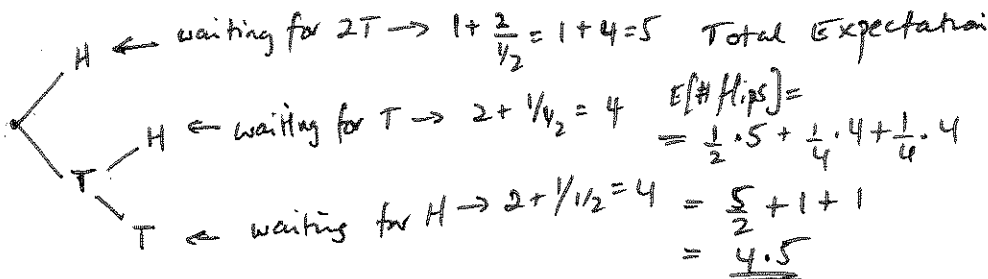 H ← waiting for 2T → 1 + 2/½ = 1 + 4 = 5 Total Expectation
H ← waiting for T → 2 + 1/½ = 4 E[# flips] =
= ½ · 5 + ¼ · 4 + ¼ · 4
T
T ← waiting for H → 2 + 1/1/2 = 4 = 5/2 + 1 + 1
= 4.5